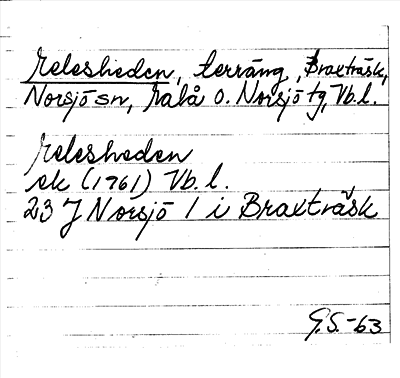 Relesheden, terräng, Braxträsk,
Norsjö sn, Malå o. Norsjö tg, Vb. l.
Relesheden
ek (1761) Vb. l.
23 J Norsjö 1 i Braxträsk
G.S.-63